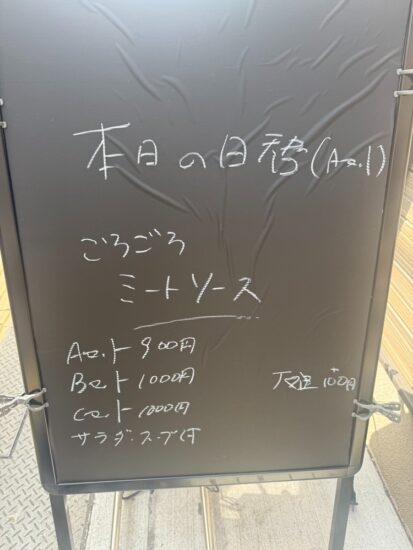 本日の日替(Aセット)
ごろごろ
ミートソース
Aセット 900円
Bセット 1000円
大盛 +100円
Cセット 1000円
サラダ・スープ付